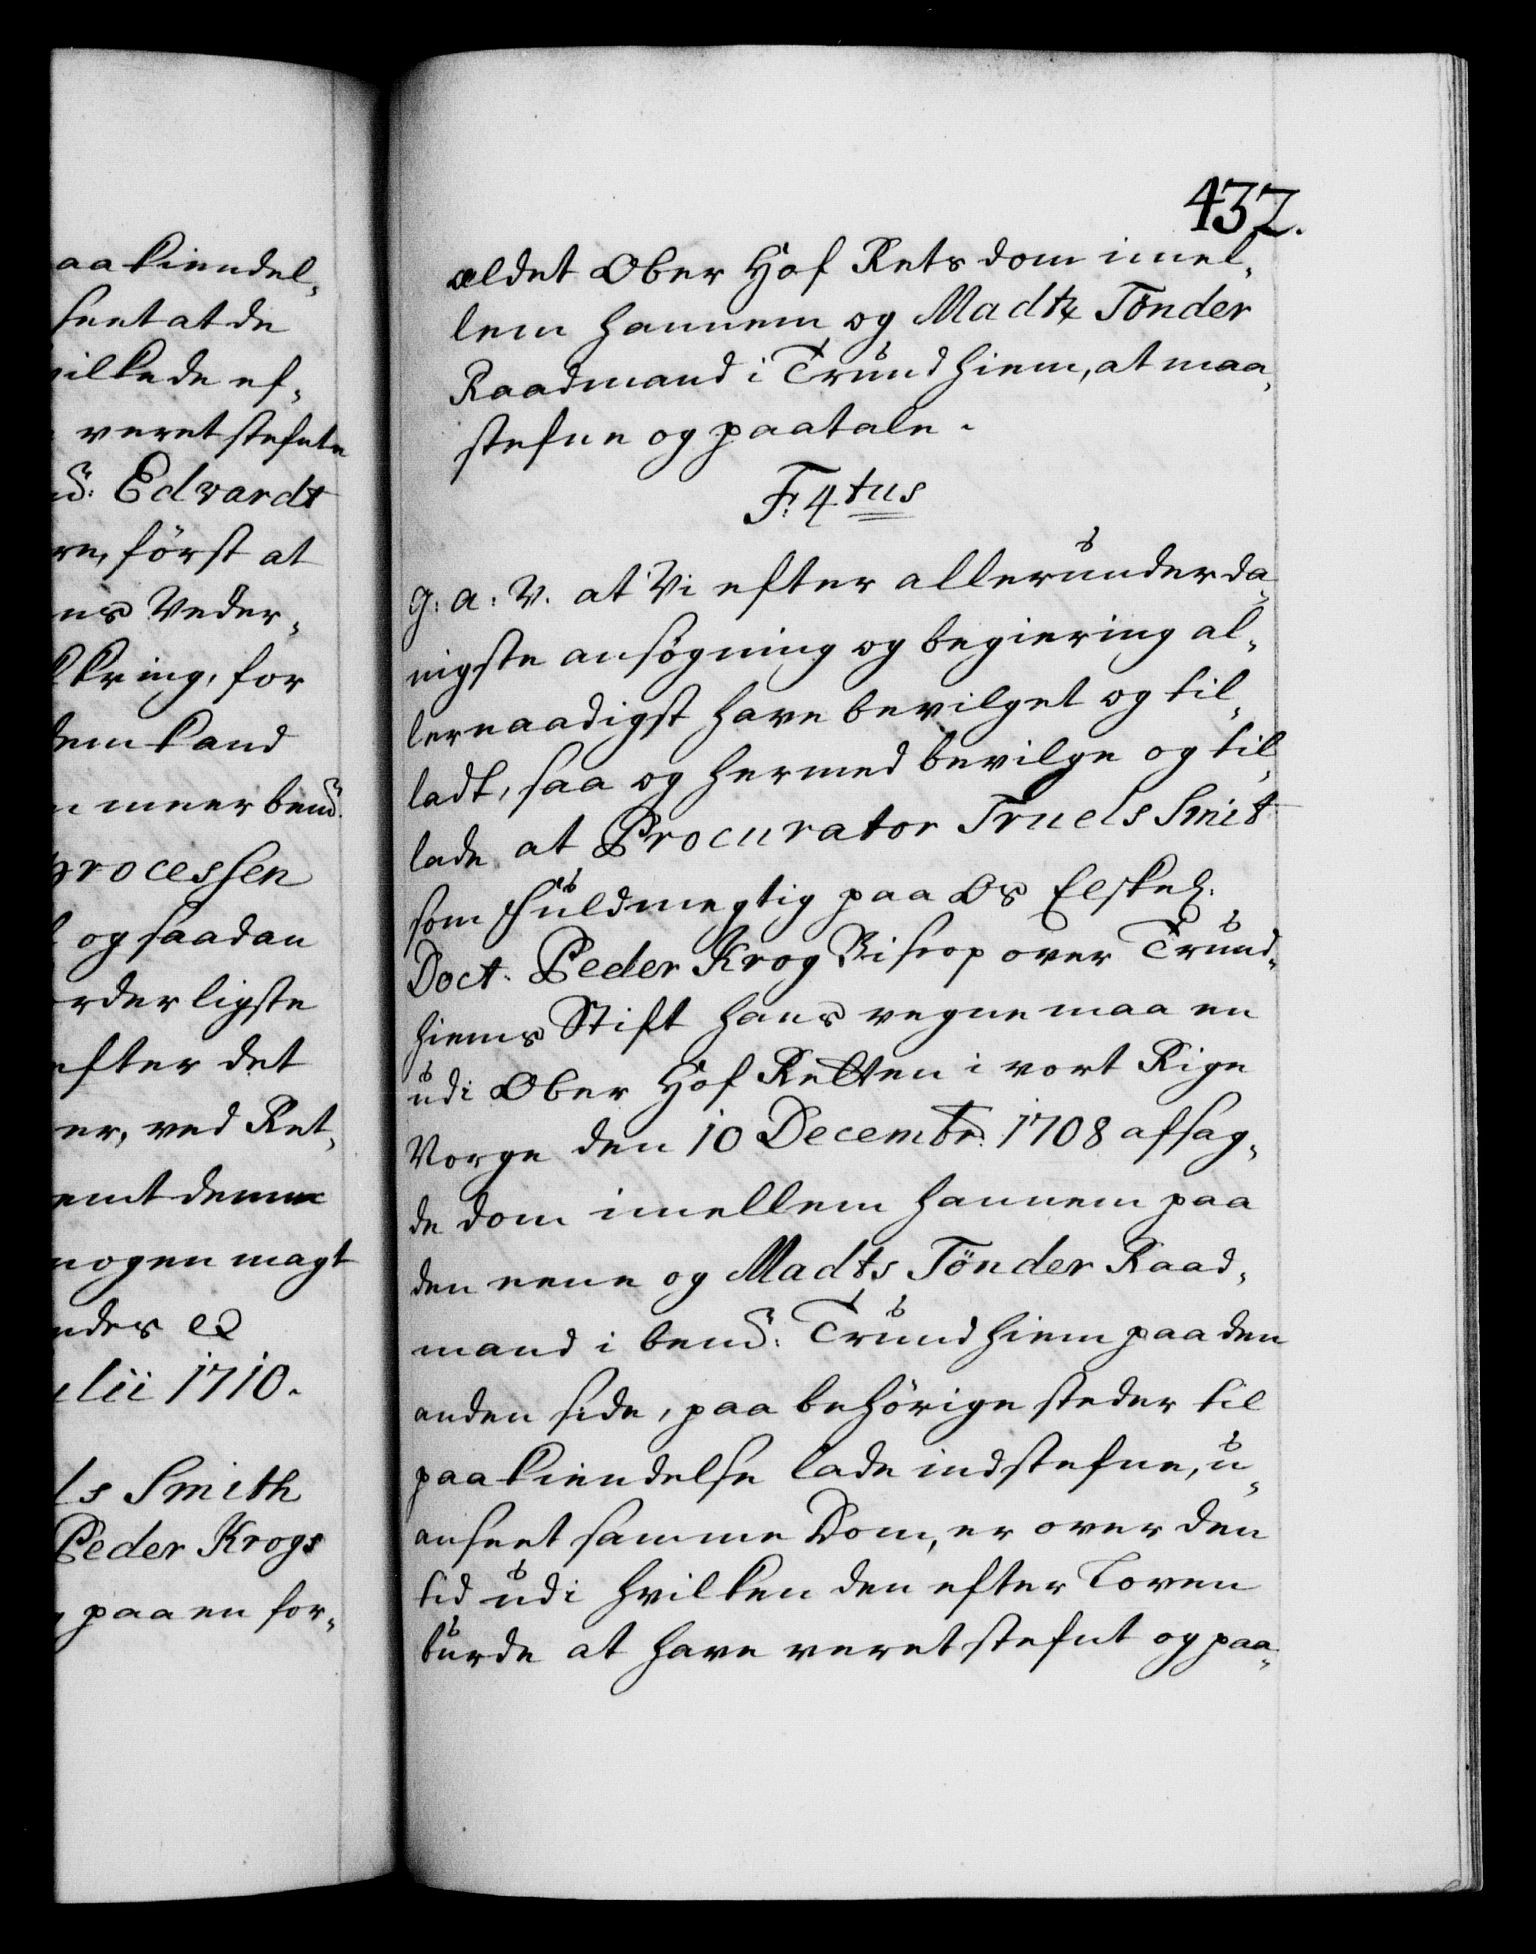 aakiendel-
seet at de
hvilkede ef-
veret stefnte
nd: Edvardt
ren, först at
ens Veder-
kring, for
dem kand
n meer bemd.
processen
og saadan
orderligste
efter det
er, ved Ret-
emt denne
nogen magt
ndes &
ulii 1710.
ls Smith
Peder Krogs
paa en for-
432.
ældet Ober Hof Rets dom imel-
lem hannem og Madts Tönder
Raadmand i Trundhiem, at maa
stefne og paatale.
F: 4tus
G: a: V. at Vi efter allerunderda-
nigste ansögning og begiering al-
lernaadigst have bevilget og til-
ladt, saa og hermed bevilge og til-
lade at Procurator Truels Smit
som fuldmegtig paa Os Elskel.
Doct. Peder Krog Biscop over Trund-
hiems Stift hans vegne maa en
udi Ober Hof Retten i vort Rige
Norge den 10 Decembr. 1708 afsag-
de dom imellem hannem paa
den eene og Madts Tönder Raad-
mand i bemd: Trundhiem paa den
anden side, paa behörige steder til
paakiendelse lade indstefne, u-
anseet samme Dom, er over den
tid udi hvilken den efter Loven
burde at have veret stefnt og paa-